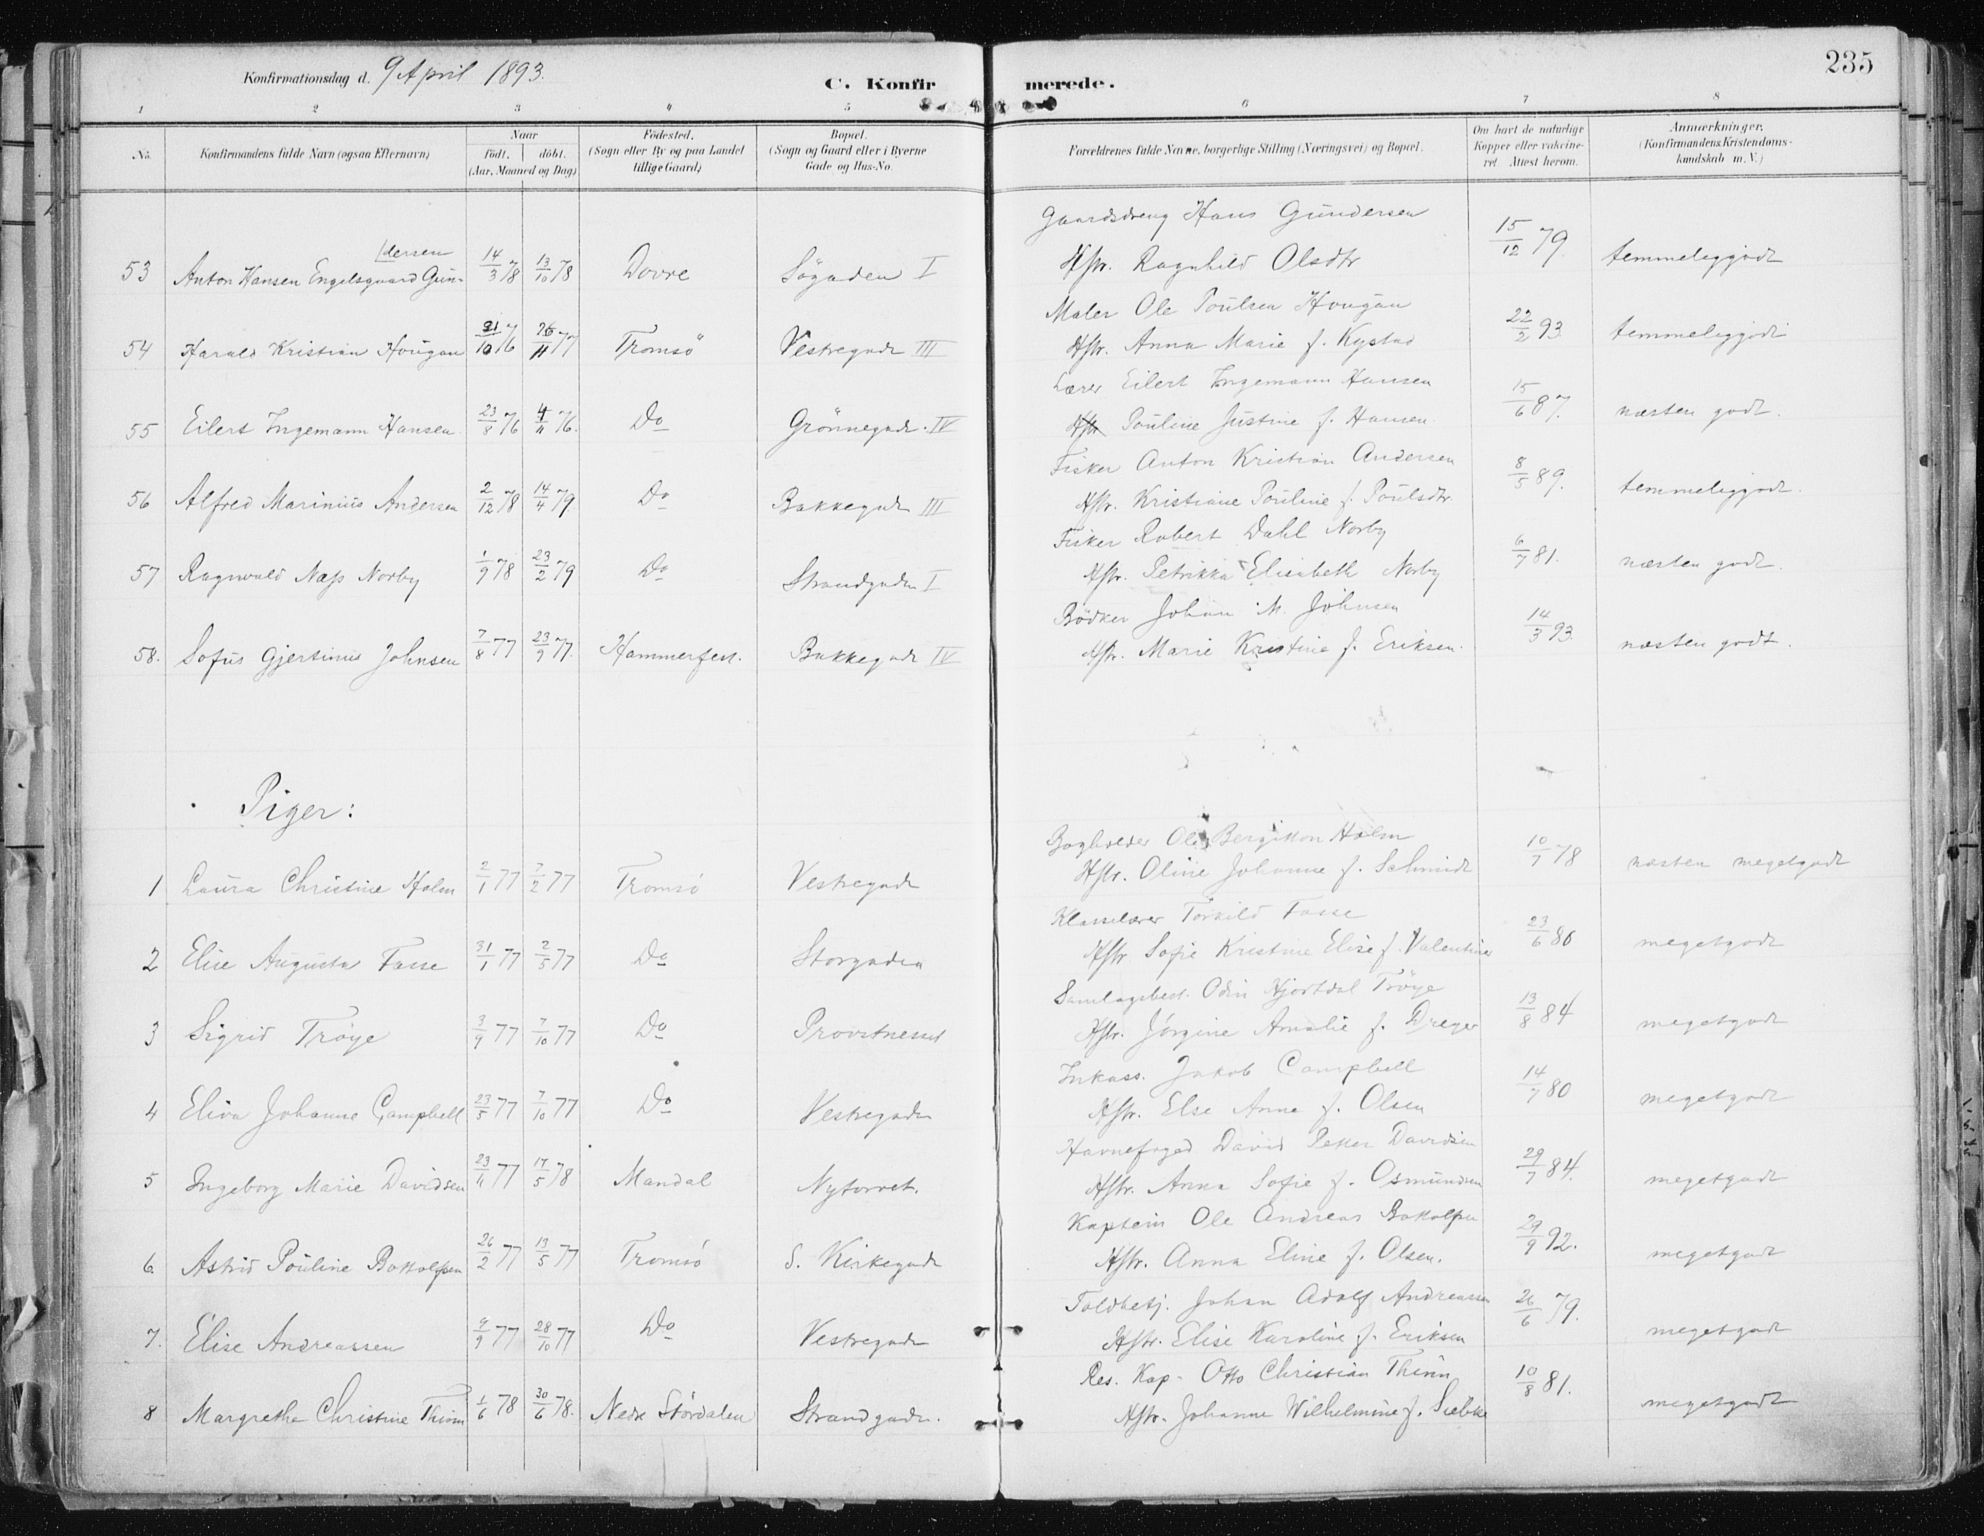 Konfirmationsdag d. 9 April 1893.
C. Konfirmerede.
235
1 2 3 4 5 6 7 8
No.
Konfirmandens fulde Navn (ogsaa Efternavn)
Naar
født. døbt.
(Aar, Maaned og Dag)
Fødested.
(Sogn eller By og paa Landet tillige Gaard)
Bopæl.
(Sogn og Gaard eller i Byerne Gade og Hus-No.
Forældrenes fulde Navne, borgerlige Stilling (Næringsvei) og Bopæl.
Om havt de naturlige Kopper eller vakcineret. Attest herom.
Anmærkninger.
(Konfirmandens Kristendomskundskab m. V.)
53 Anton Hansen Engelsgaard Gundersen 14/3 78 13/10 78 Dovre Sögaden I Gaardsdreng Hans Gundersen
Hstr. Ragnhild Olsdtr 15/12 79. temmeliggodt
54 Harald Kristian Hougan 21/10 76 26/11 77 Tromsö Vestregade III Maler Ole Poulsen Hougan
Hstr. Anna Marie f. Kystad 22/2 93 temmeliggodt
55 Eilert Ingemann Hansen 23/8 76 4/11 76. Do Grönnegade. IV Lærer Eilert Ingemann Hansen
Hstr Pouline Justine f. Hansen. 15/6 87. næsten godt.
56 Alfred Marinius Andersen 2/12 78 14/4 79 Do Bakkegade III Fisker Anton Kristian Andersen
Hstr. Kristiane Pouline f. Poulsdtr. 8/5 89. temmeliggodt.
57 Ragnvald Næss Norby 1/9 78 23/2 79 Do Strandgaden I Fisker Robert Dahl Norby
Hstr. Petrikka Elisabeth Norby 6/7 81. næsten godt.
58. Sofus Gjertinus Johnsen 7/8 77 23/9 77. Hammerfest. Bakkegade IV Bödker Johan M. Johnsen
Hstr. Marie Kristine f. Eriksen. 14/3 93 næsten godt.
Piger:
1 Laura Christine Holm 2/1 77 7/2 77 Tromsö Vestregade Bogholder Ole Bergithon Holm
Hstr. Oline Johanne f. Schmidt 10/7 78 næsten megetgodt
2 Elise Augusta Fasse 31/1 77 2/5 77 Do Storgaden Klasselærer Torkild Fasse
Hstr Sofie Kristine Elise f. Valentiner 23/6 80 megetgodt
3 Sigrid Tröye 3/9 77 7/10 77 Do Provstnesset Samlagsbest. Odin Hjortdal Tröye
Hstr. Jørgine Amalie f. Dreyer 13/8 84 megetgodt
4 Eliva Johanne Campbell 23/5 77 7/10 77 Do Vestregaden Inkass. Jakob Campbell
Hstr. Else Anna f. Olsen 14/7 80 megetgodt
5 Ingeborg Marie Davidsen 23/11 77 17/5 78 Mandal Nytorvet. Havnefoged David Petter Davidsen
Hstr. Anna Sofie f. Osmundsen 29/7 84. megetgodt
6. Astrid Pouline Bottolfsen 26/2 77 13/5 77 Tromsö S. Kirkegade Kaptein Ole Andreas Bottolfsen
Hstr. Anna Eline f. Olsen. 29/9 92. megetgodt
7. Elise Andreassen 9/9 77 28/10 77 Do Vestregade Toldbetj. Johan Adolf Andreassen
Hstr. Elise Karoline f. Eriksen 26/6 79. megetgodt
8 Margrethe Christine Thinn 1/6 78 30/6 78. Nedre Stördalen Strandgade. Res. Kap. Otto Christian Thinn
Hstr. Johanne Wilhelmine f. Siebke 10/8 81. megetgodt